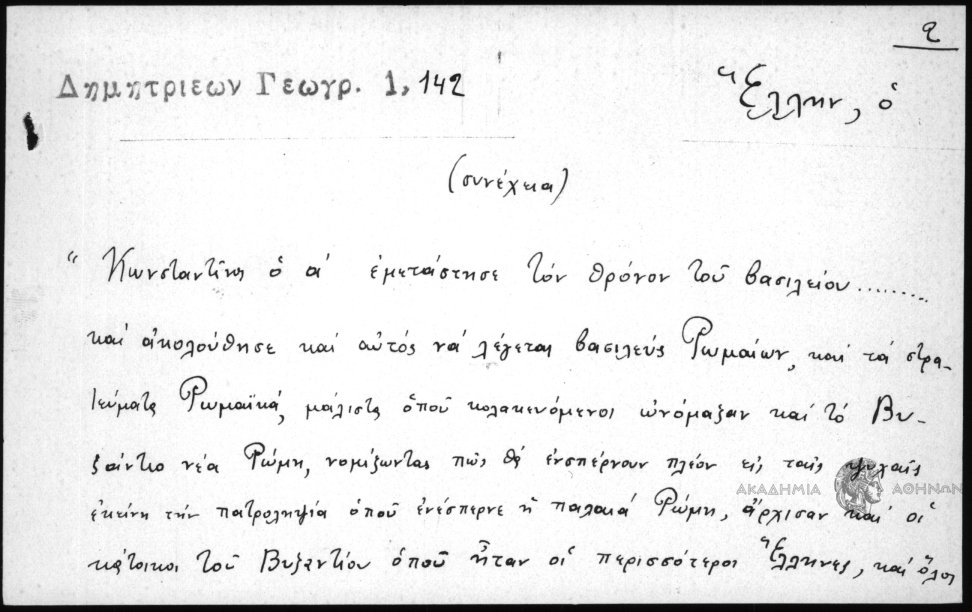 2
Δημητριεων Γεωγρ. 1, 142
Ἕλλην, ὁ
(συνέχεια)
"Κωνσταντῖνος ὁ α' ἐμετάστησε τὸν θρόνον τοῦ βασιλείου.........
καὶ ἀκολούθησε καὶ αὐτὸς νὰ λέγεται βασιλεὺς Ῥωμαίων, καὶ τὰ στρα-
τεύματα Ῥωμαϊκά, μάλιστα ὁποῦ κολακευόμενοι ὠνόμαζαν καὶ τὸ Βυ-
ζάντιο νέα Ῥώμη, νομίζωντας πῶς θὰ ἐνσπέρνουν πλέον εἰς ταῖς ψυχαῖς
ἐκείνη τὴν πατροληψία ὁποῦ ἐνέσπερνε ἡ παλαιά Ῥώμη, ἄρχισαν καὶ οἱ
κάτοικοι τοῦ Βυζαντίου ὁποῦ ἦταν οἱ περισσότεροι Ἕλληνες, καὶ ὅλοι
ΑΚΑΔΗΜΙΑ ΑΘΗΝΩΝ